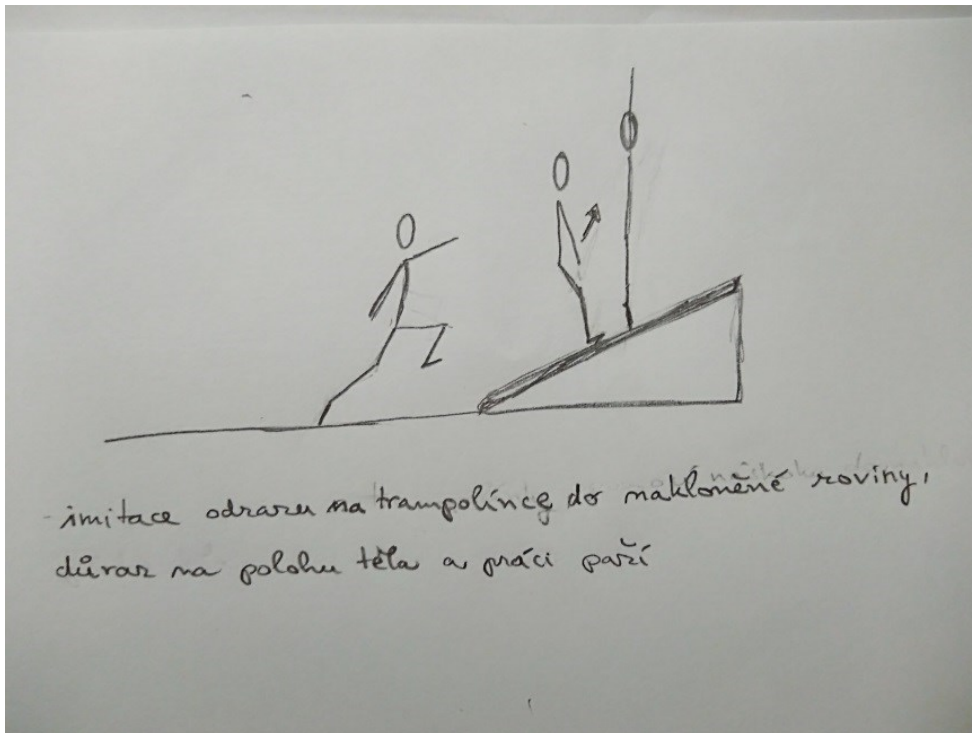 - imitace odrazu na trampolínce do nakloněné roviny,
důraz na polohu těla a práci paží